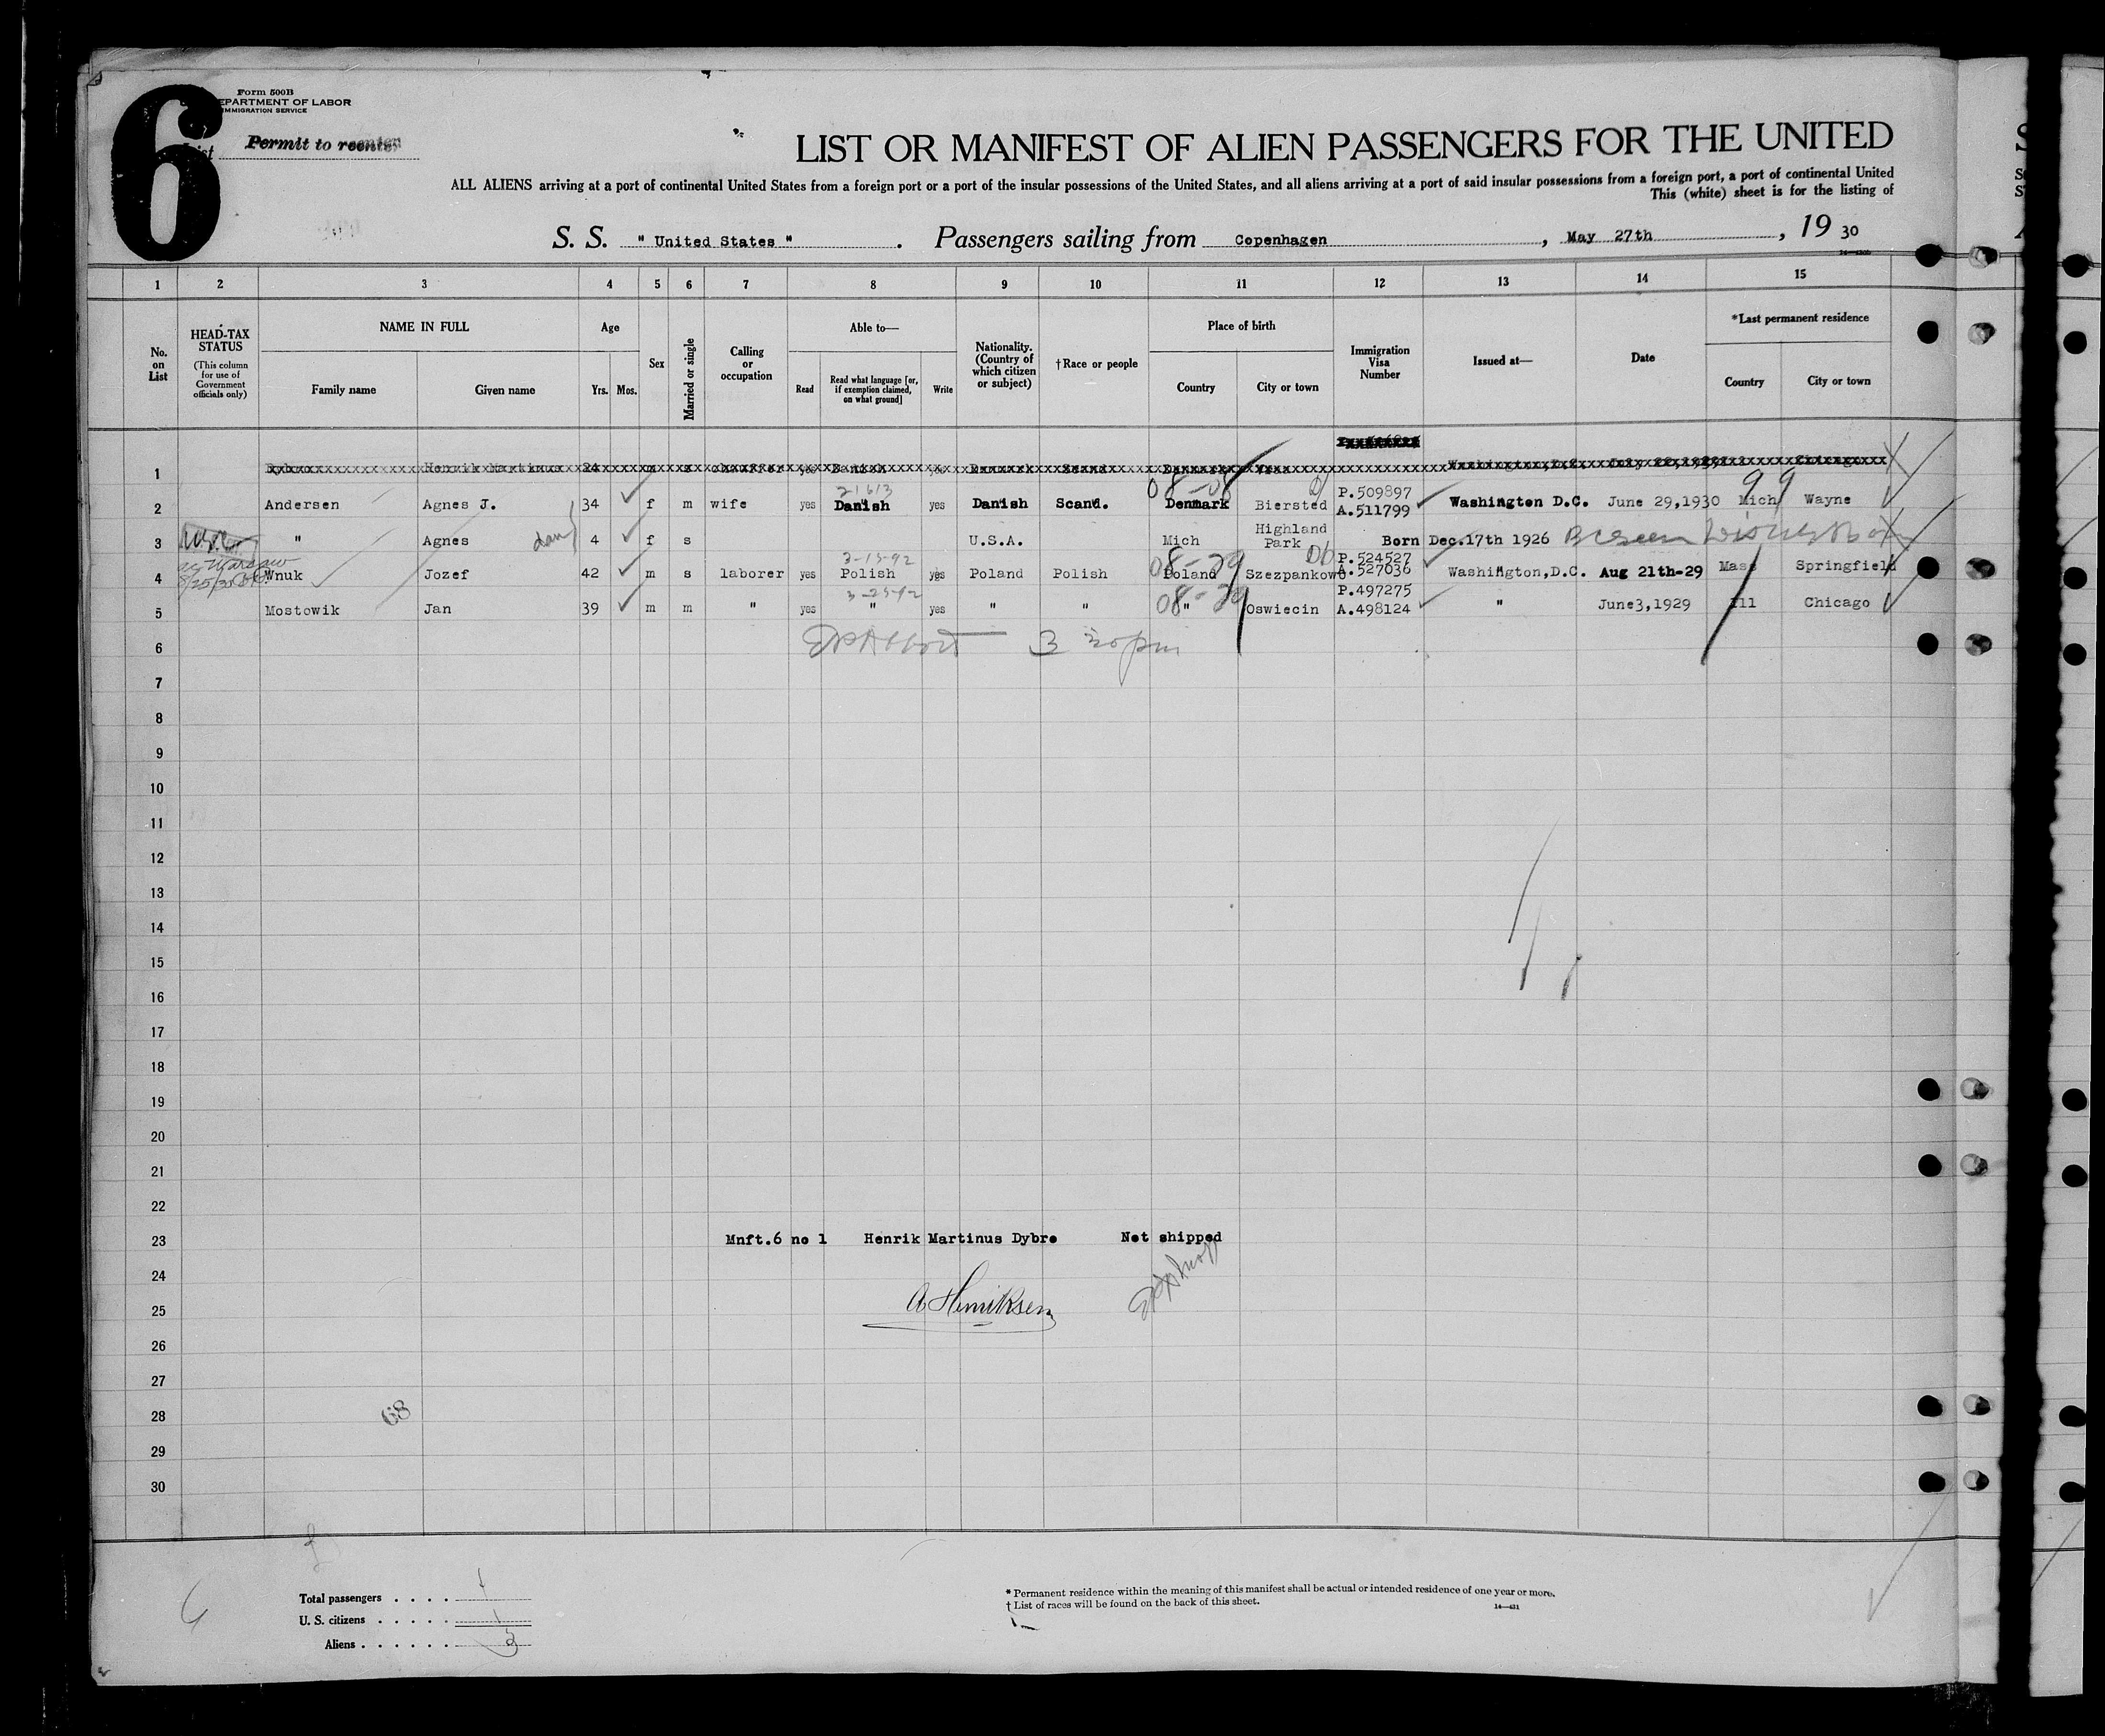 6
Form 500B
DEPARTMENT OF LABOR
IMMIGRATION SERVICE
List Permit to reenter
LIST OR MANIFEST OF ALIEN PASSENGERS FOR THE UNITED
ALL ALIENS arriving at a port of continental United States from a foreign port or a port of the insular possessions of the United States, and all aliens arriving at a port of said insular possessions from a foreign port, a port of continental United
This (white) sheet is for the listing of
S. S. " United States " . Passengers sailing from Copenhagen , May 27th , 19 30
1 2 3 4 5 6 7 8 9 10 11 12 13 14 15
No. on List
HEAD-TAX STATUS (This column for use of Government officials only)
NAME IN FULL Family name Given name
Age Yrs. Mos.
Sex
Married or single
Calling or occupation
Able to— Read Read what language [or, if exemption claimed, on what ground] Write
Nationality. (Country of which citizen or subject)
†Race or people
Place of birth Country City or town
Immigration Visa Number
Issued at—
Date
*Last permanent residence Country City or town
1 Henrik Martinus 24 m s chauffer yes Danish yes Denmark Scand. Denmark Washington,D.C. Chicago
21613 08-08
2 Andersen Agnes J. 34 f m wife yes Danish yes Danish Scand. Denmark Biersted P.509897 A.511799 Washington D.C. June 29,1930 Mich Wayne
99
3 " Agnes dau 4 f s U.S.A. Mich Highland Park Born Dec.17th 1926
3-15-92 08-29
4 Wnuk Jozef 42 m s laborer yes Polish yes Poland Polish Poland Szezpankowo P.524527 A.527036 Washington,D.C. Aug 21th-29 Mass Springfield
3-25-92 08-29
5 Mostowik Jan 39 m m " yes " yes " " " Oswiecin P.497275 A.498124 " June3,1929 Ill Chicago
6 3 30 pm
7
8
9
10
11
12
13
14
15
16
17
18
19
20
21
22
23 Mnft.6 no 1 Henrik Martinus Dybro Not shipped
24
25 A Henriksen
26
27
28 68
29
30
6
Total passengers . . . .
U. S. citizens . . . . . 1
Aliens . . . . . . 3
* Permanent residence within the meaning of this manifest shall be actual or intended residence of one year or more.
† List of races will be found on the back of this sheet.